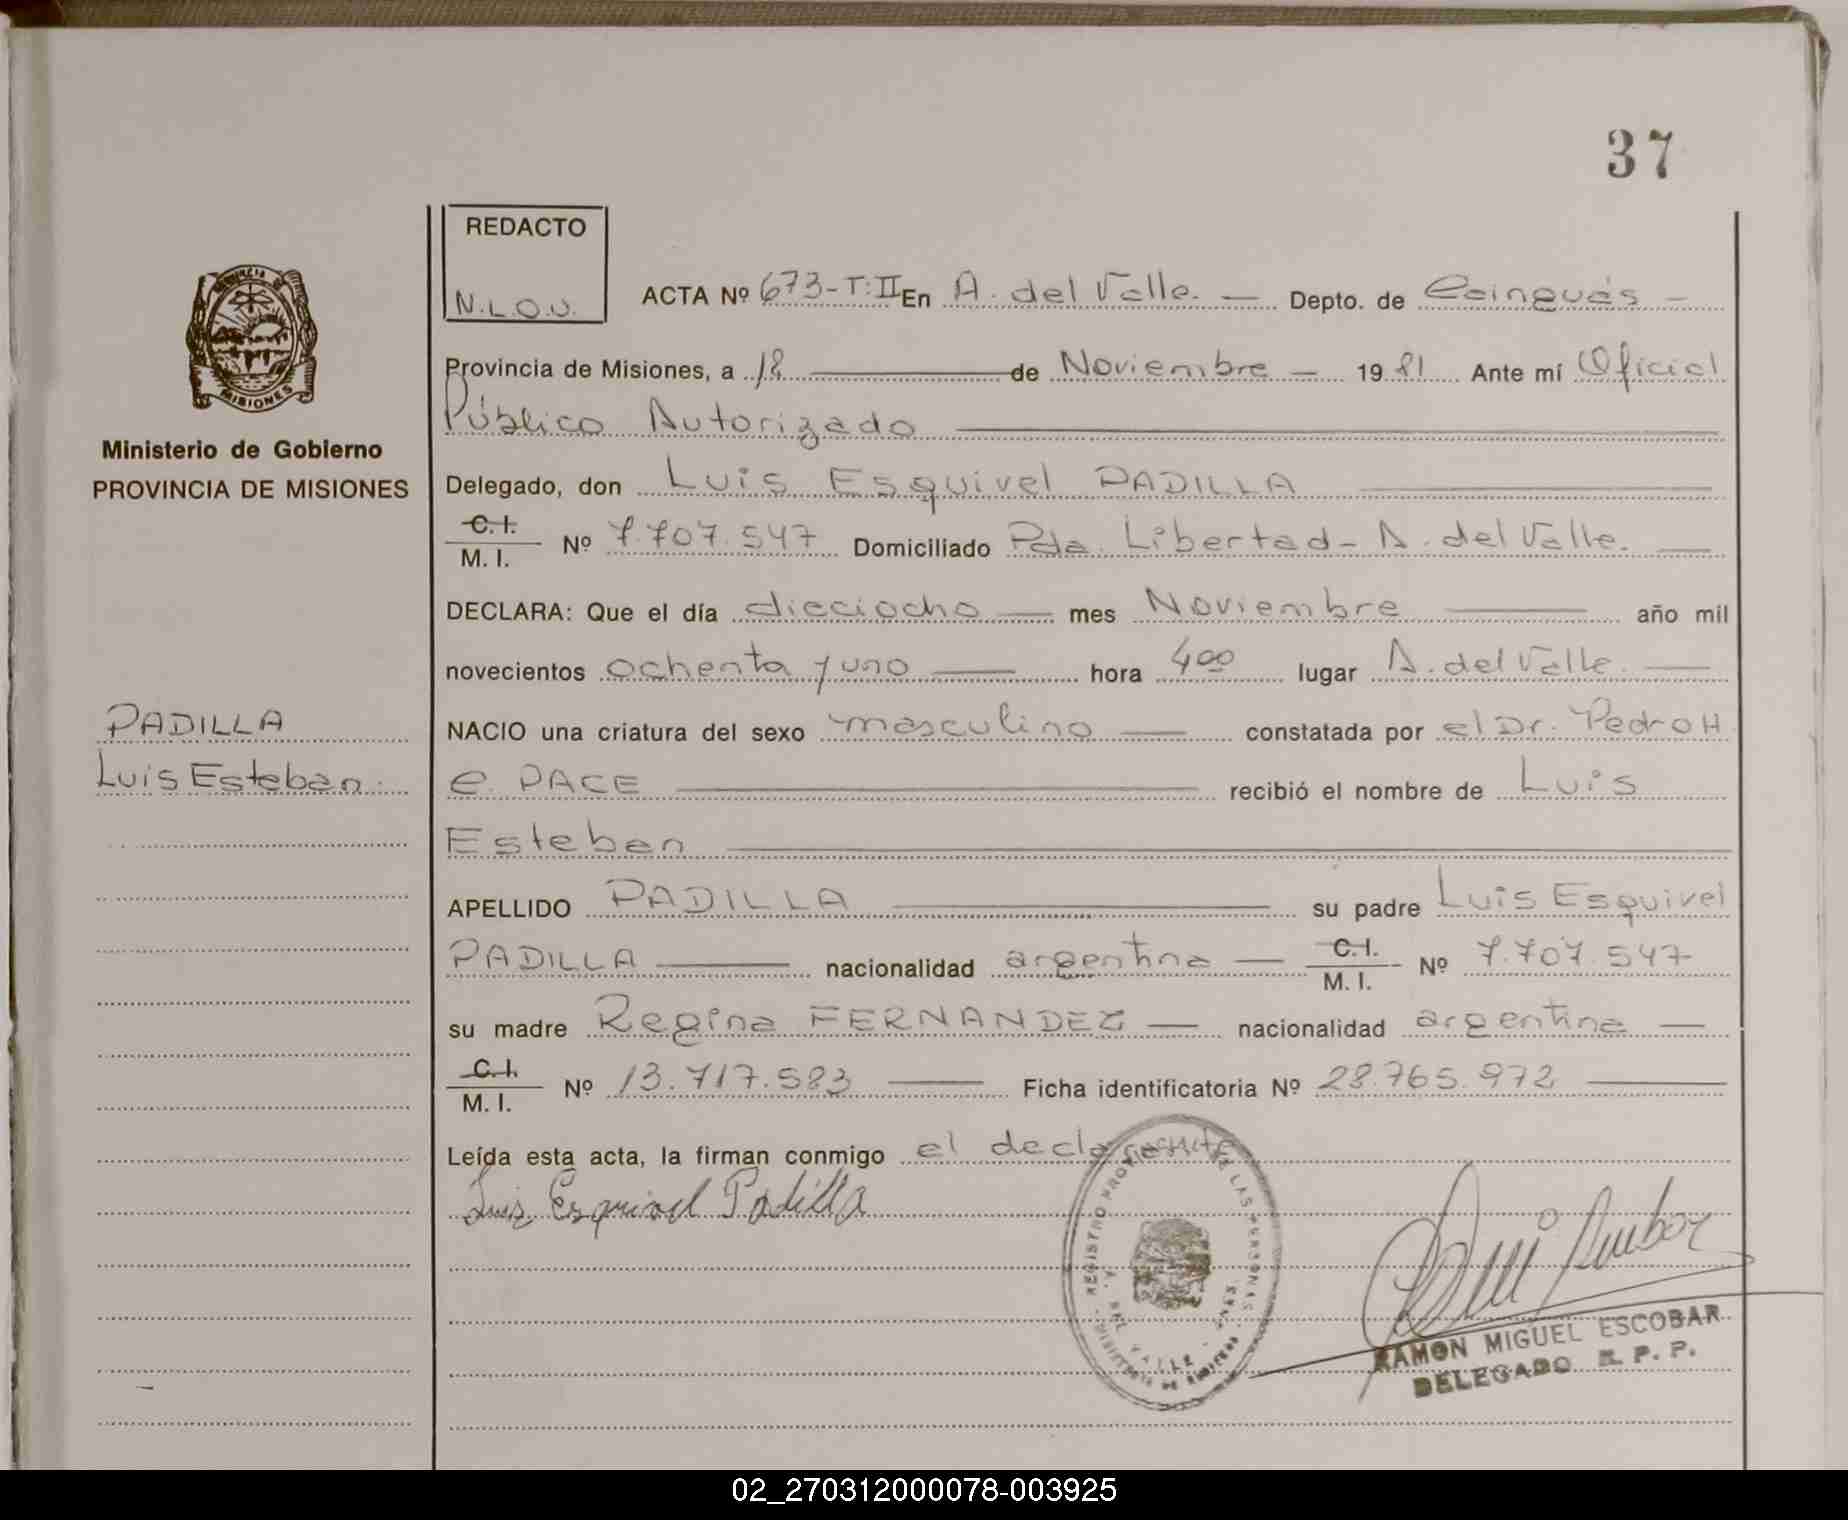 37
REDACTO
N.L.O.V.
ACTA Nº 673-T:II En A. del Valle. — Depto. de Cainguás —
Provincia de Misiones, a 18 — de Noviembre — 1981 Ante mí Oficial
Público Autorizado
MISIONES
Ministerio de Gobierno
PROVINCIA DE MISIONES
Delegado, don Luis Esquivel PADILLA
C.I.
M. I. Nº 7.707.547 Domiciliado Pda. Libertad - A. del Valle. —
DECLARA: Que el día dieciocho — mes Noviembre — año mil
novecientos ochenta y uno — hora 4 00 lugar A. del Valle. —
PADILLA
Luis Esteban.
NACIO una criatura del sexo masculino — constatada por el Dr. Pedro H
e. PACE — recibió el nombre de Luis
Esteban
APELLIDO PADILLA — su padre Luis Esquivel
PADILLA — nacionalidad argentina — C.I.
M. I. Nº 7.707.547
su madre Regina FERNANDEZ — nacionalidad argentina —
C.I.
M. I. Nº 13.717.583 — Ficha identificatoria Nº 28.765.972 —
Leída esta acta, la firman conmigo el declarante
Luis Esquivel Padilla
REGISTRO PROV. LAS PERSONAS
A. DEL VALLE
RAMON MIGUEL ESCOBAR
DELEGADO R. P. P.
02_270312000078-003925